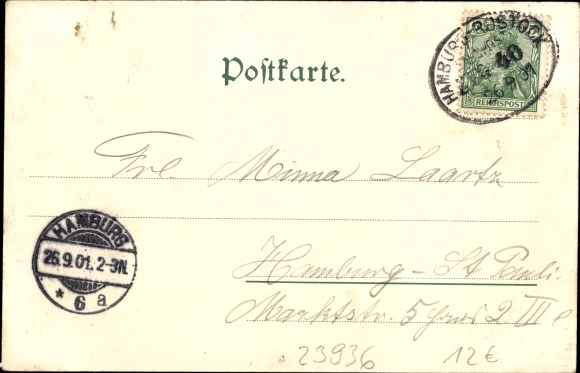 Postkarte.
HAMBURG-ROSTOCK
40
26.9.01
REICHSPOST
Frl. Minna Laartz
HAMBURG
26.9.01. 2-3N.
* 6 a
Hamburg - St Pauli
Marktstr. 5 2 III
23936 12€